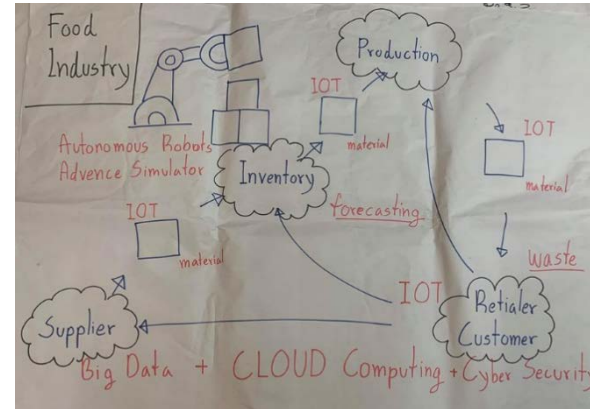 Food
Industry
Production
IOT
material
IOT
material
Autonomous Robots
Advence Simulator
Inventory
forecasting
IOT
material
waste
IOT
Retialer
Customer
Supplier
Big Data + CLOUD Computing + Cyber Security